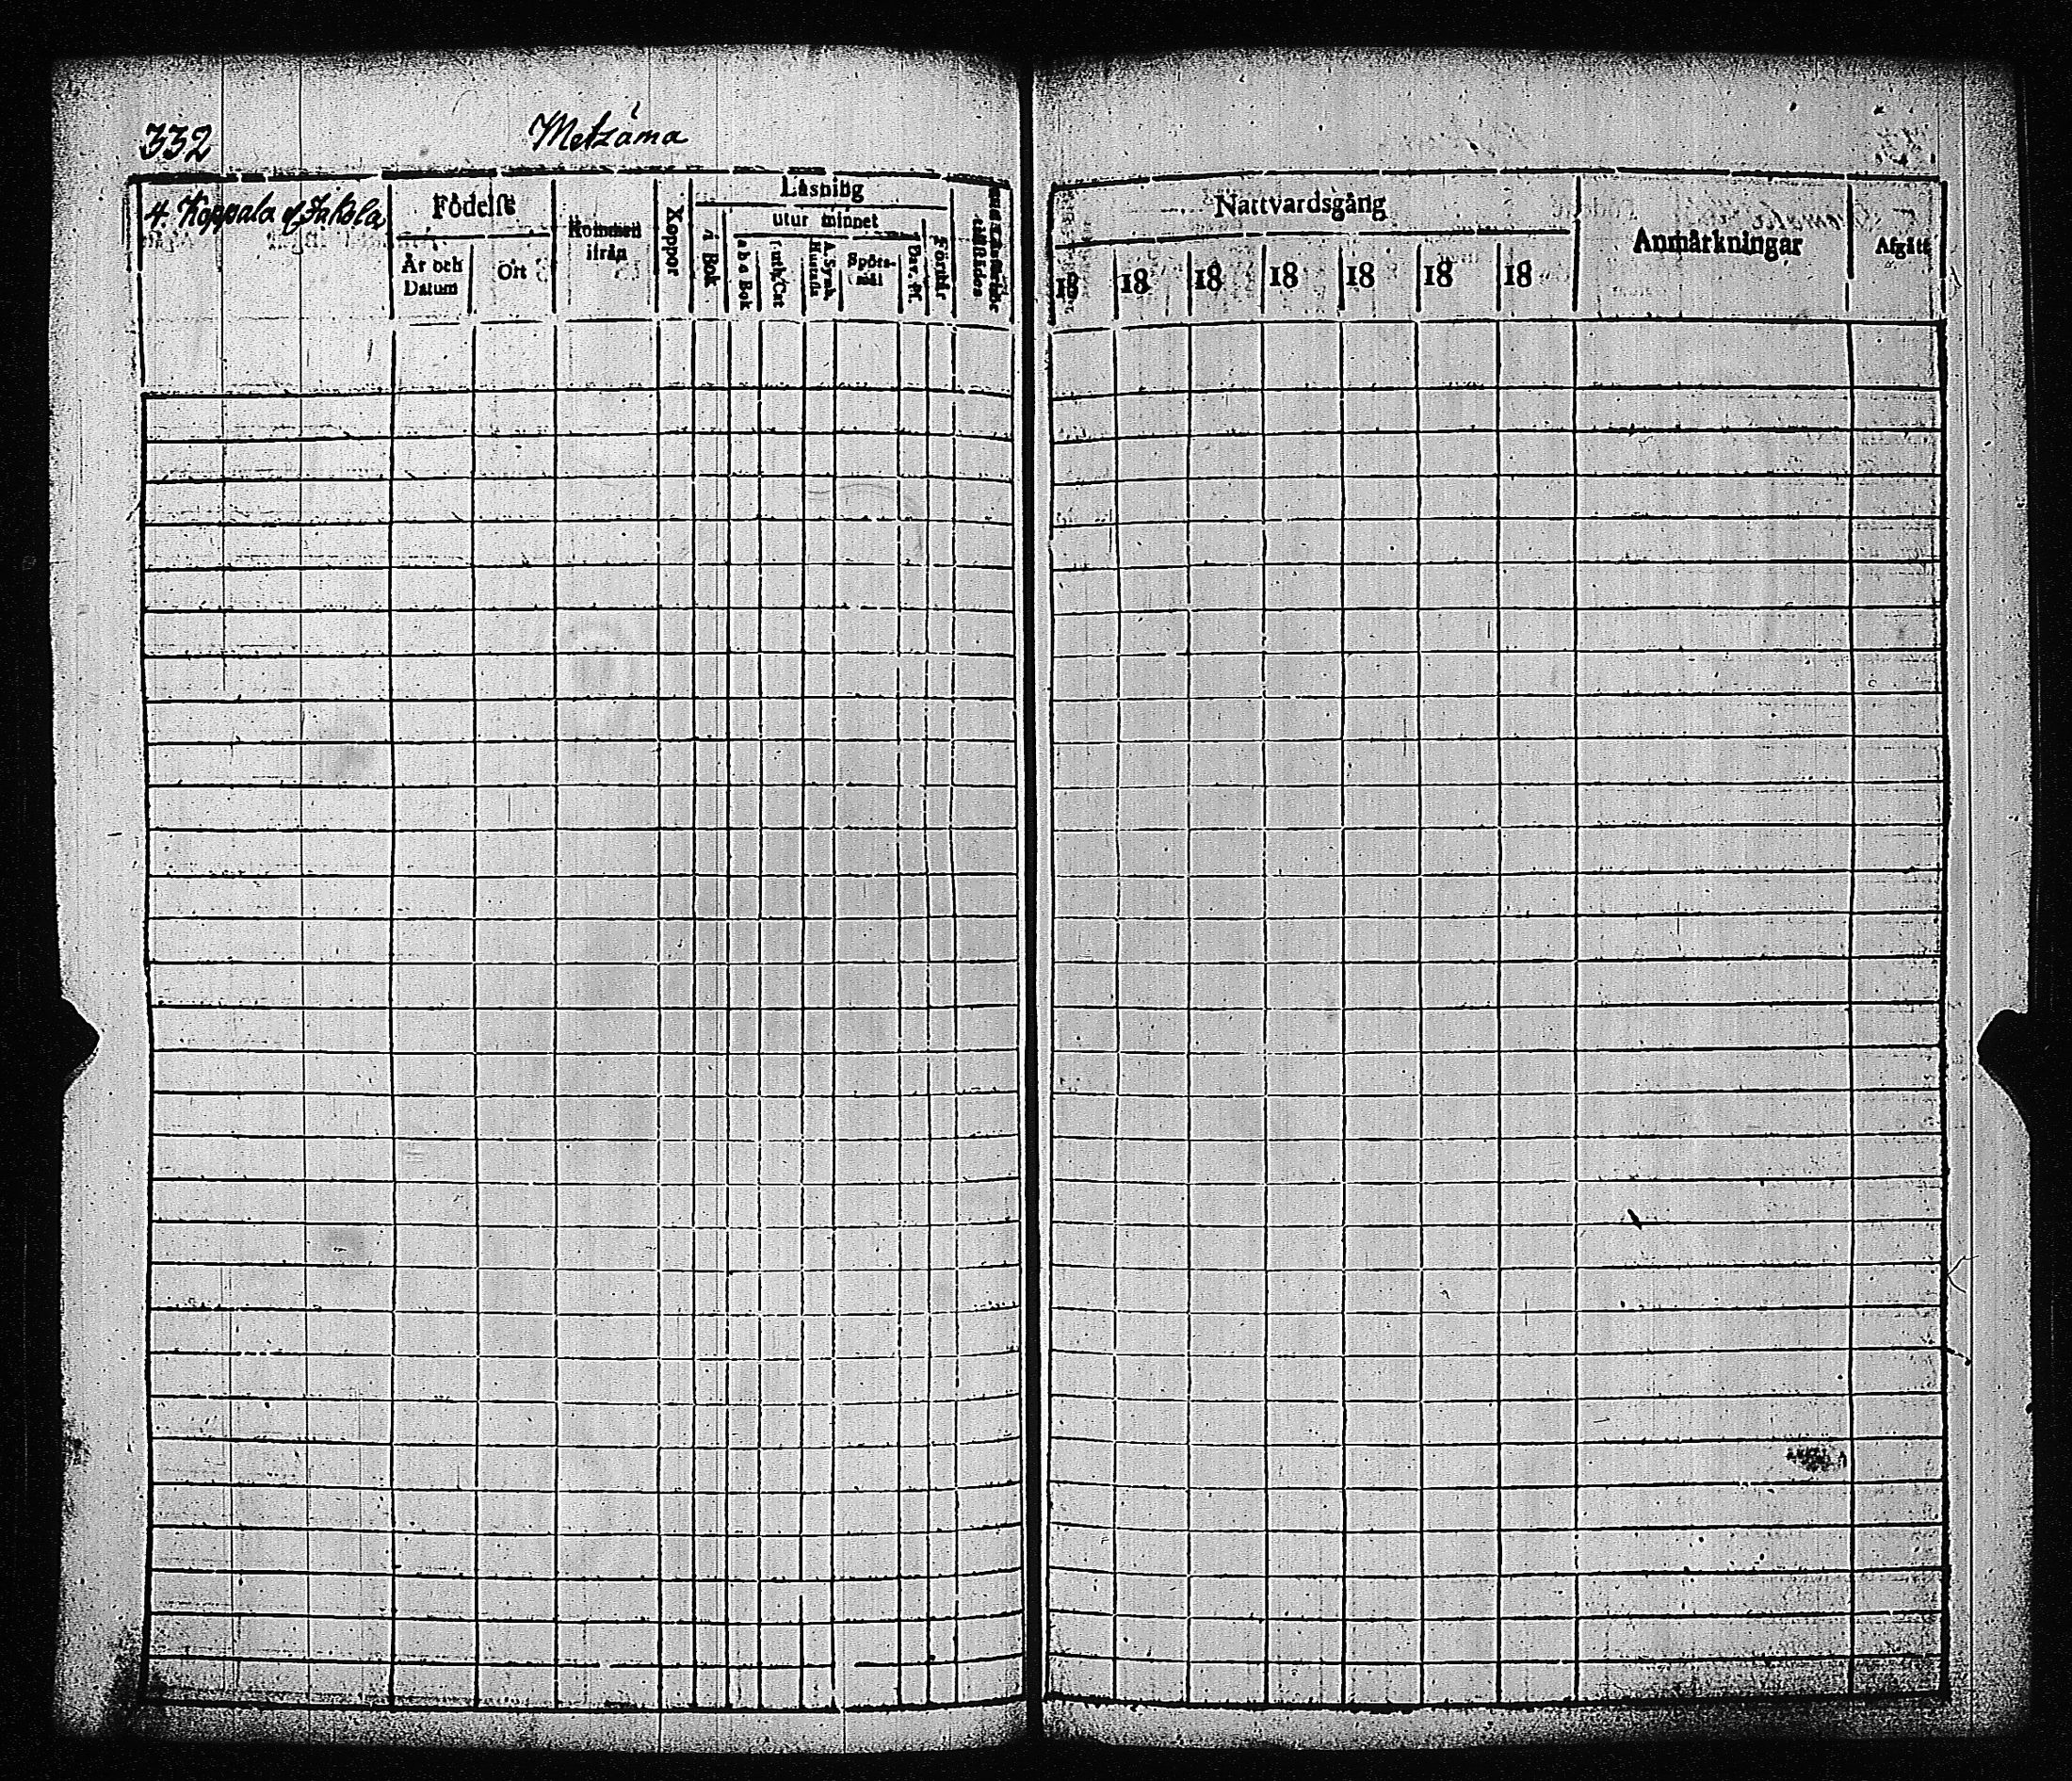 332
Metzäma
4. Koppala
Födelse
År och Datum
Ort
Kommen ifrån
Koppor
Läsning
i Bok
utur minnet
a b c Bok
Luth. Cat
A. Symb. Hustafla
Spörsmål
Dav. Ps.
Förstår
Nattvardsgång
18 18 18 18 18 18 18
Anmärkningar
Afgått